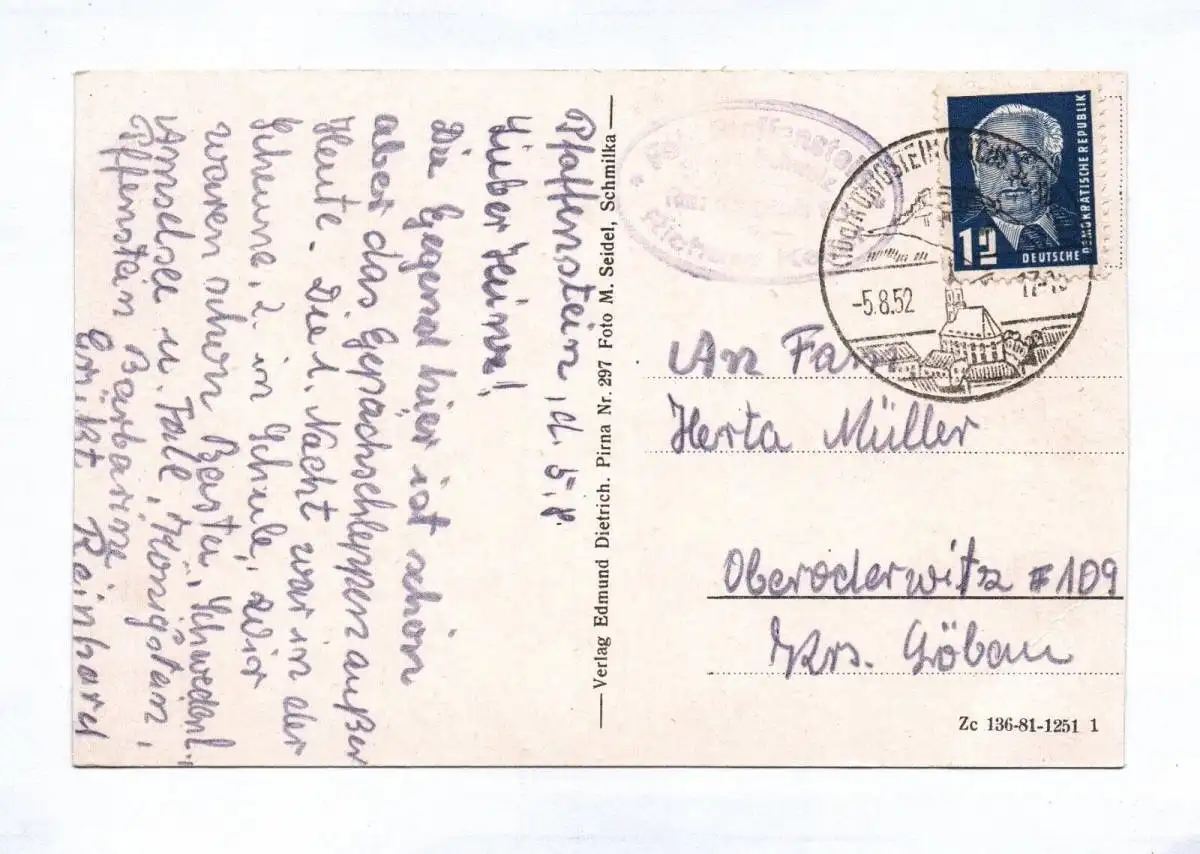 Pfaffenstein, d. 5.8.
Lieber Heinz!
Die Gegend hier ist schön
aber das Gepäckschleppen außer
Heute. Die 1. Nacht war in der
Scheune, 2. in Schule, Wir
waren schon Bastei, Schwedenl.,
Amselsee u. Fall, Königstein,
Pfaffenstein Barbarine
Grüßt Reinhard
Verlag Edmund Dietrich. Pirna Nr. 297 Foto M. Seidel, Schmilka
(10a) KÖNIGSTEIN
-5.8.52
DEUTSCHE DEMOKRATISCHE REPUBLIK
12
An Fam.
Herta Müller
Oberoderwitz #109
Krs. Löbau
Zc 136-81-1251 1